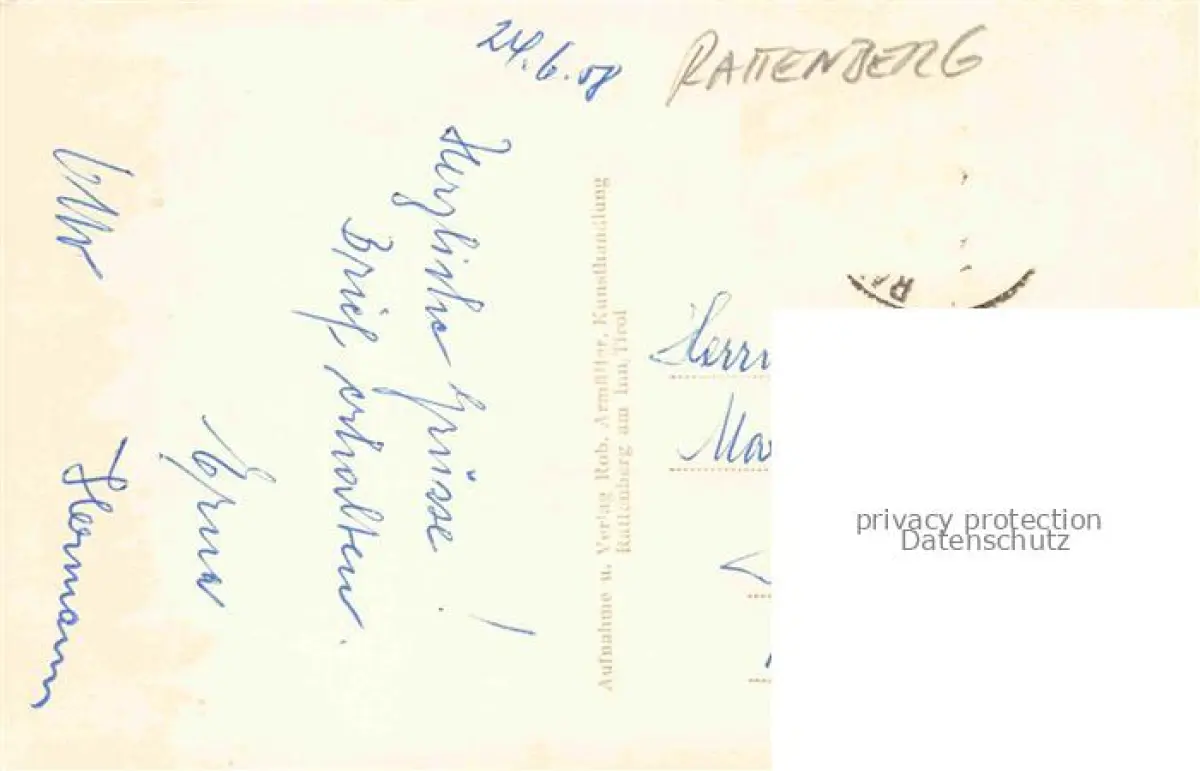 24.6.58
RATTENBERG
Herzliche Grüsse!
Brief erhalten.
Erna
Hermann
Aufnahme u. Verlag Rob. Armüller, Kunsthandlung
Rattenberg am Inn, Tirol
Herrn
privacy protection
Datenschutz